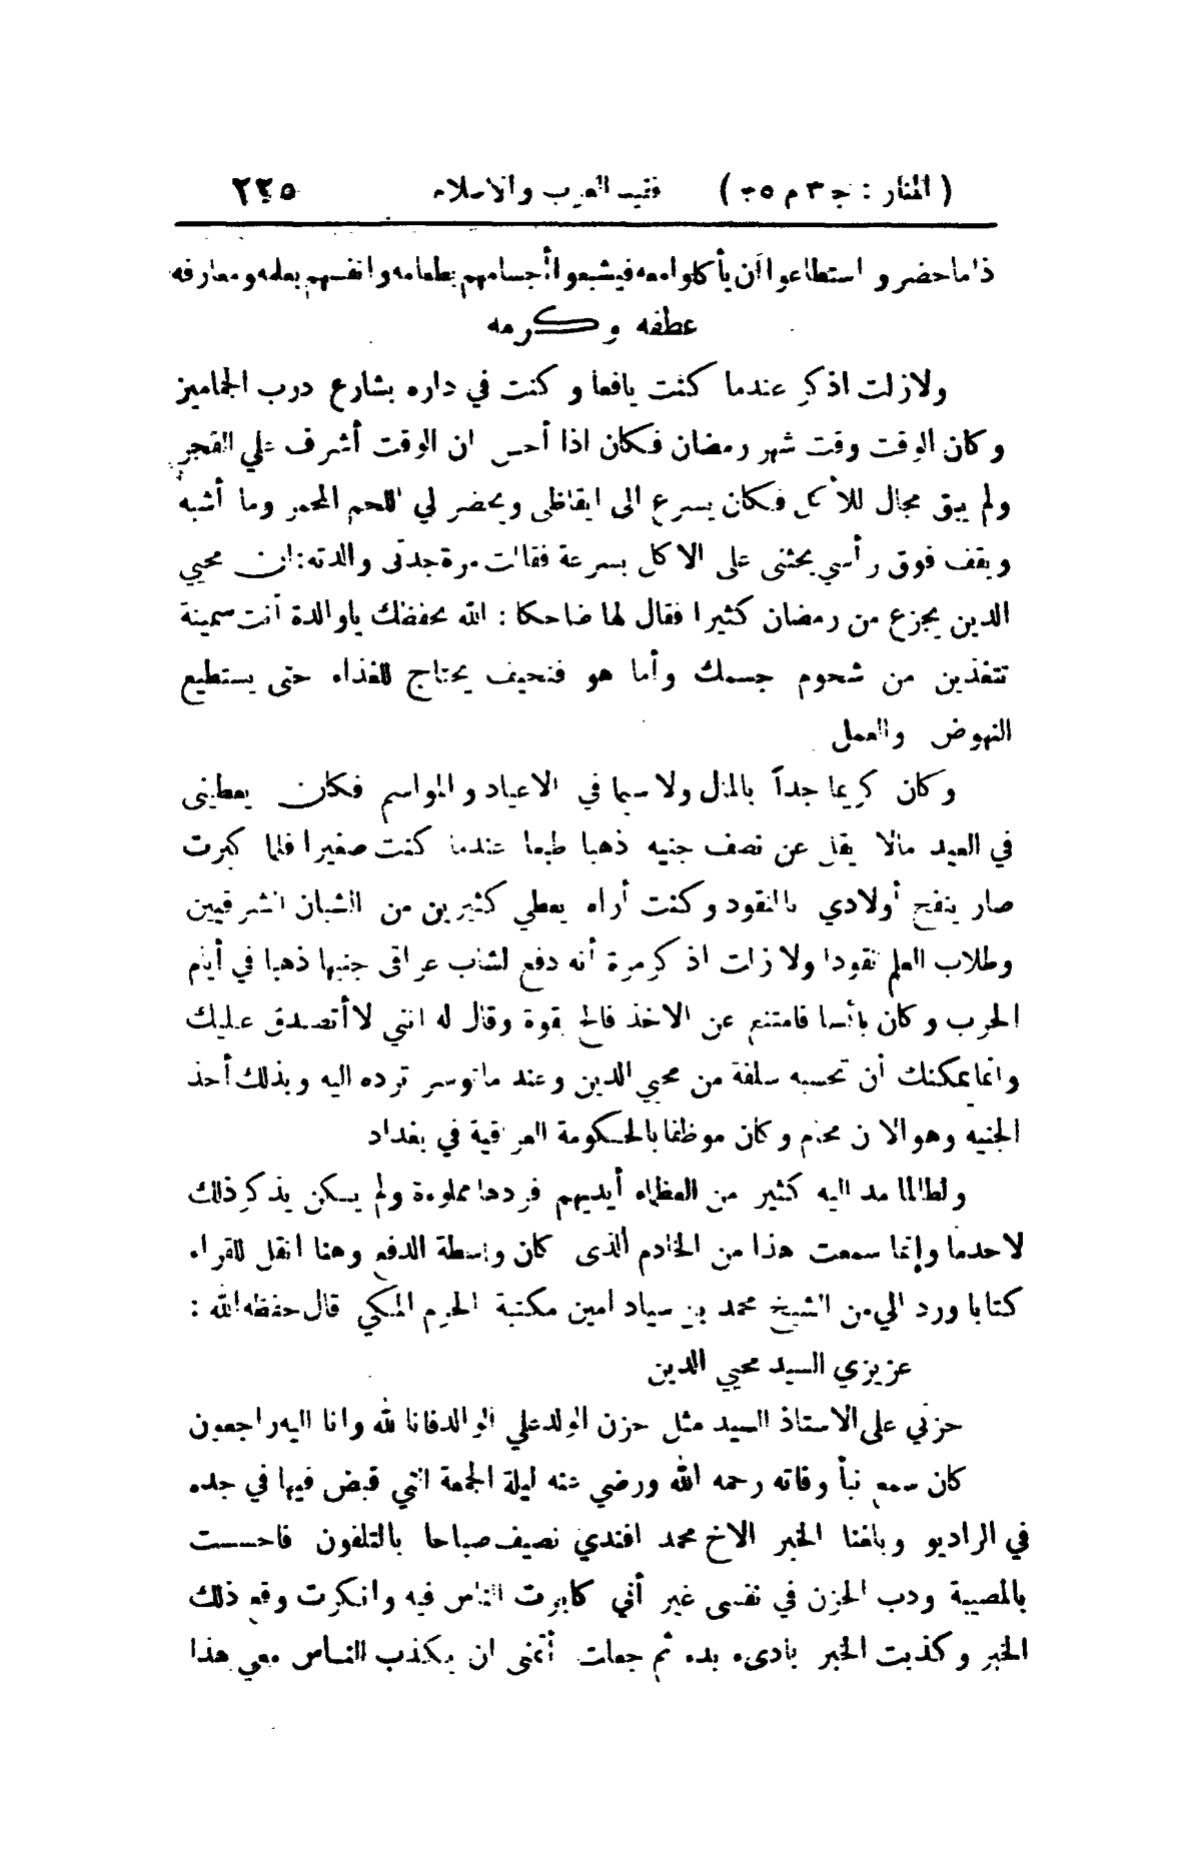 ( المنار : ج ٣ م ٣٥ ) فقيد العرب والاسلام ٢٢٥
ذا ما حضر و استطاعوا أن يأكلوا معه فيشبعوا أجسامهم بطعامه وانفسهم بعلمه ومعارفه
عطفه وكرمه
ولازلت اذكر عندما كنت يافعا وكنت في داره بشارع درب الجماميز
وكان الوقت وقت شهر رمضان فكان اذا أحس ان الوقت أشرف علي الفجر
ولم يبق مجال للأكل فكان يسرع الى ايقاظى ويحضر لي اللحم المحمر وما أشبه
ويقف فوق رأسي يحثنى على الاكل بسرعة فقالت مرة جدتى والدته: ان محيي
الدين يجزع من رمضان كثيرا فقال لها ضاحكا : الله يحفظك ياوالدة أنت سمينة
تتغذين من شحوم جسمك وأما هو فنحيف يحتاج للغذاء حتى يستطيع
النهوض والعمل
وكان كريما جداً بالمال ولا سيما في الاعياد والمواسم فكان يعطينى
في العيد مالا يقل عن نصف جنيه ذهبا طبعا عندما كنت صغيرا فلما كبرت
صار ينفح أولادي بالنقود وكنت أراه يعطي كثيرين من الشبان الشرقيين
وطلاب العلم نقودا ولا زلت اذكر مرة أنه دفع لشاب عراقى جنيها ذهبا في أيام
الحرب وكان بائسا فامتنع عن الاخذ فالح بقوة وقال له انني لا أتصدق عليك
وانما يمكنك أن تحسبه سلفة من محيي الدين وعند ماتوسر ترده اليه وبذلك أخذ
الجنيه وهو الان محام وكان موظفا بالحكومة العراقية في بغداد
ولطالما مد اليه كثير من العظماء أيديهم فردها مملوءة ولم يكن يذكر ذلك
لاحد ما وإنما سمعت هذا من الخادم الذى كان واسطة الدفع وهنا انقل للقراء
كتابا ورد الي من الشيخ محمد بن سياد امين مكتبة الحرم المكي قال حفظه الله :
عزيزي السيد محيي الدين
حزني على الاستاذ السيد مثل حزن الولد علي الوالد فانا لله وانا اليه راجعون
كان سمع نبأ وفاته رحمه الله ورضي عنه ليلة الجمعة التي قبض فيها في جده
في الراديو وبلغنا الخبر الاخ محمد افندي نصيف صباحا بالتلفون فاحسست
بالمصيبة ودب الحزن في نفسى غير أني كابرت الناس فيه وانكرت وقع ذلك
الخبر وكذبت الخبر بادىء بدء ثم جعلت أتمنى ان يكذب الناس معي هذا